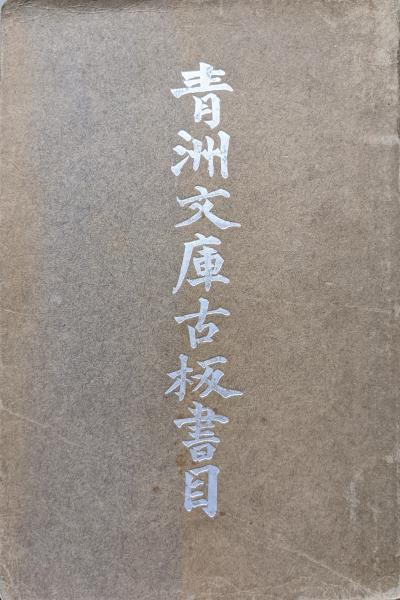 青洲文庫古板書目